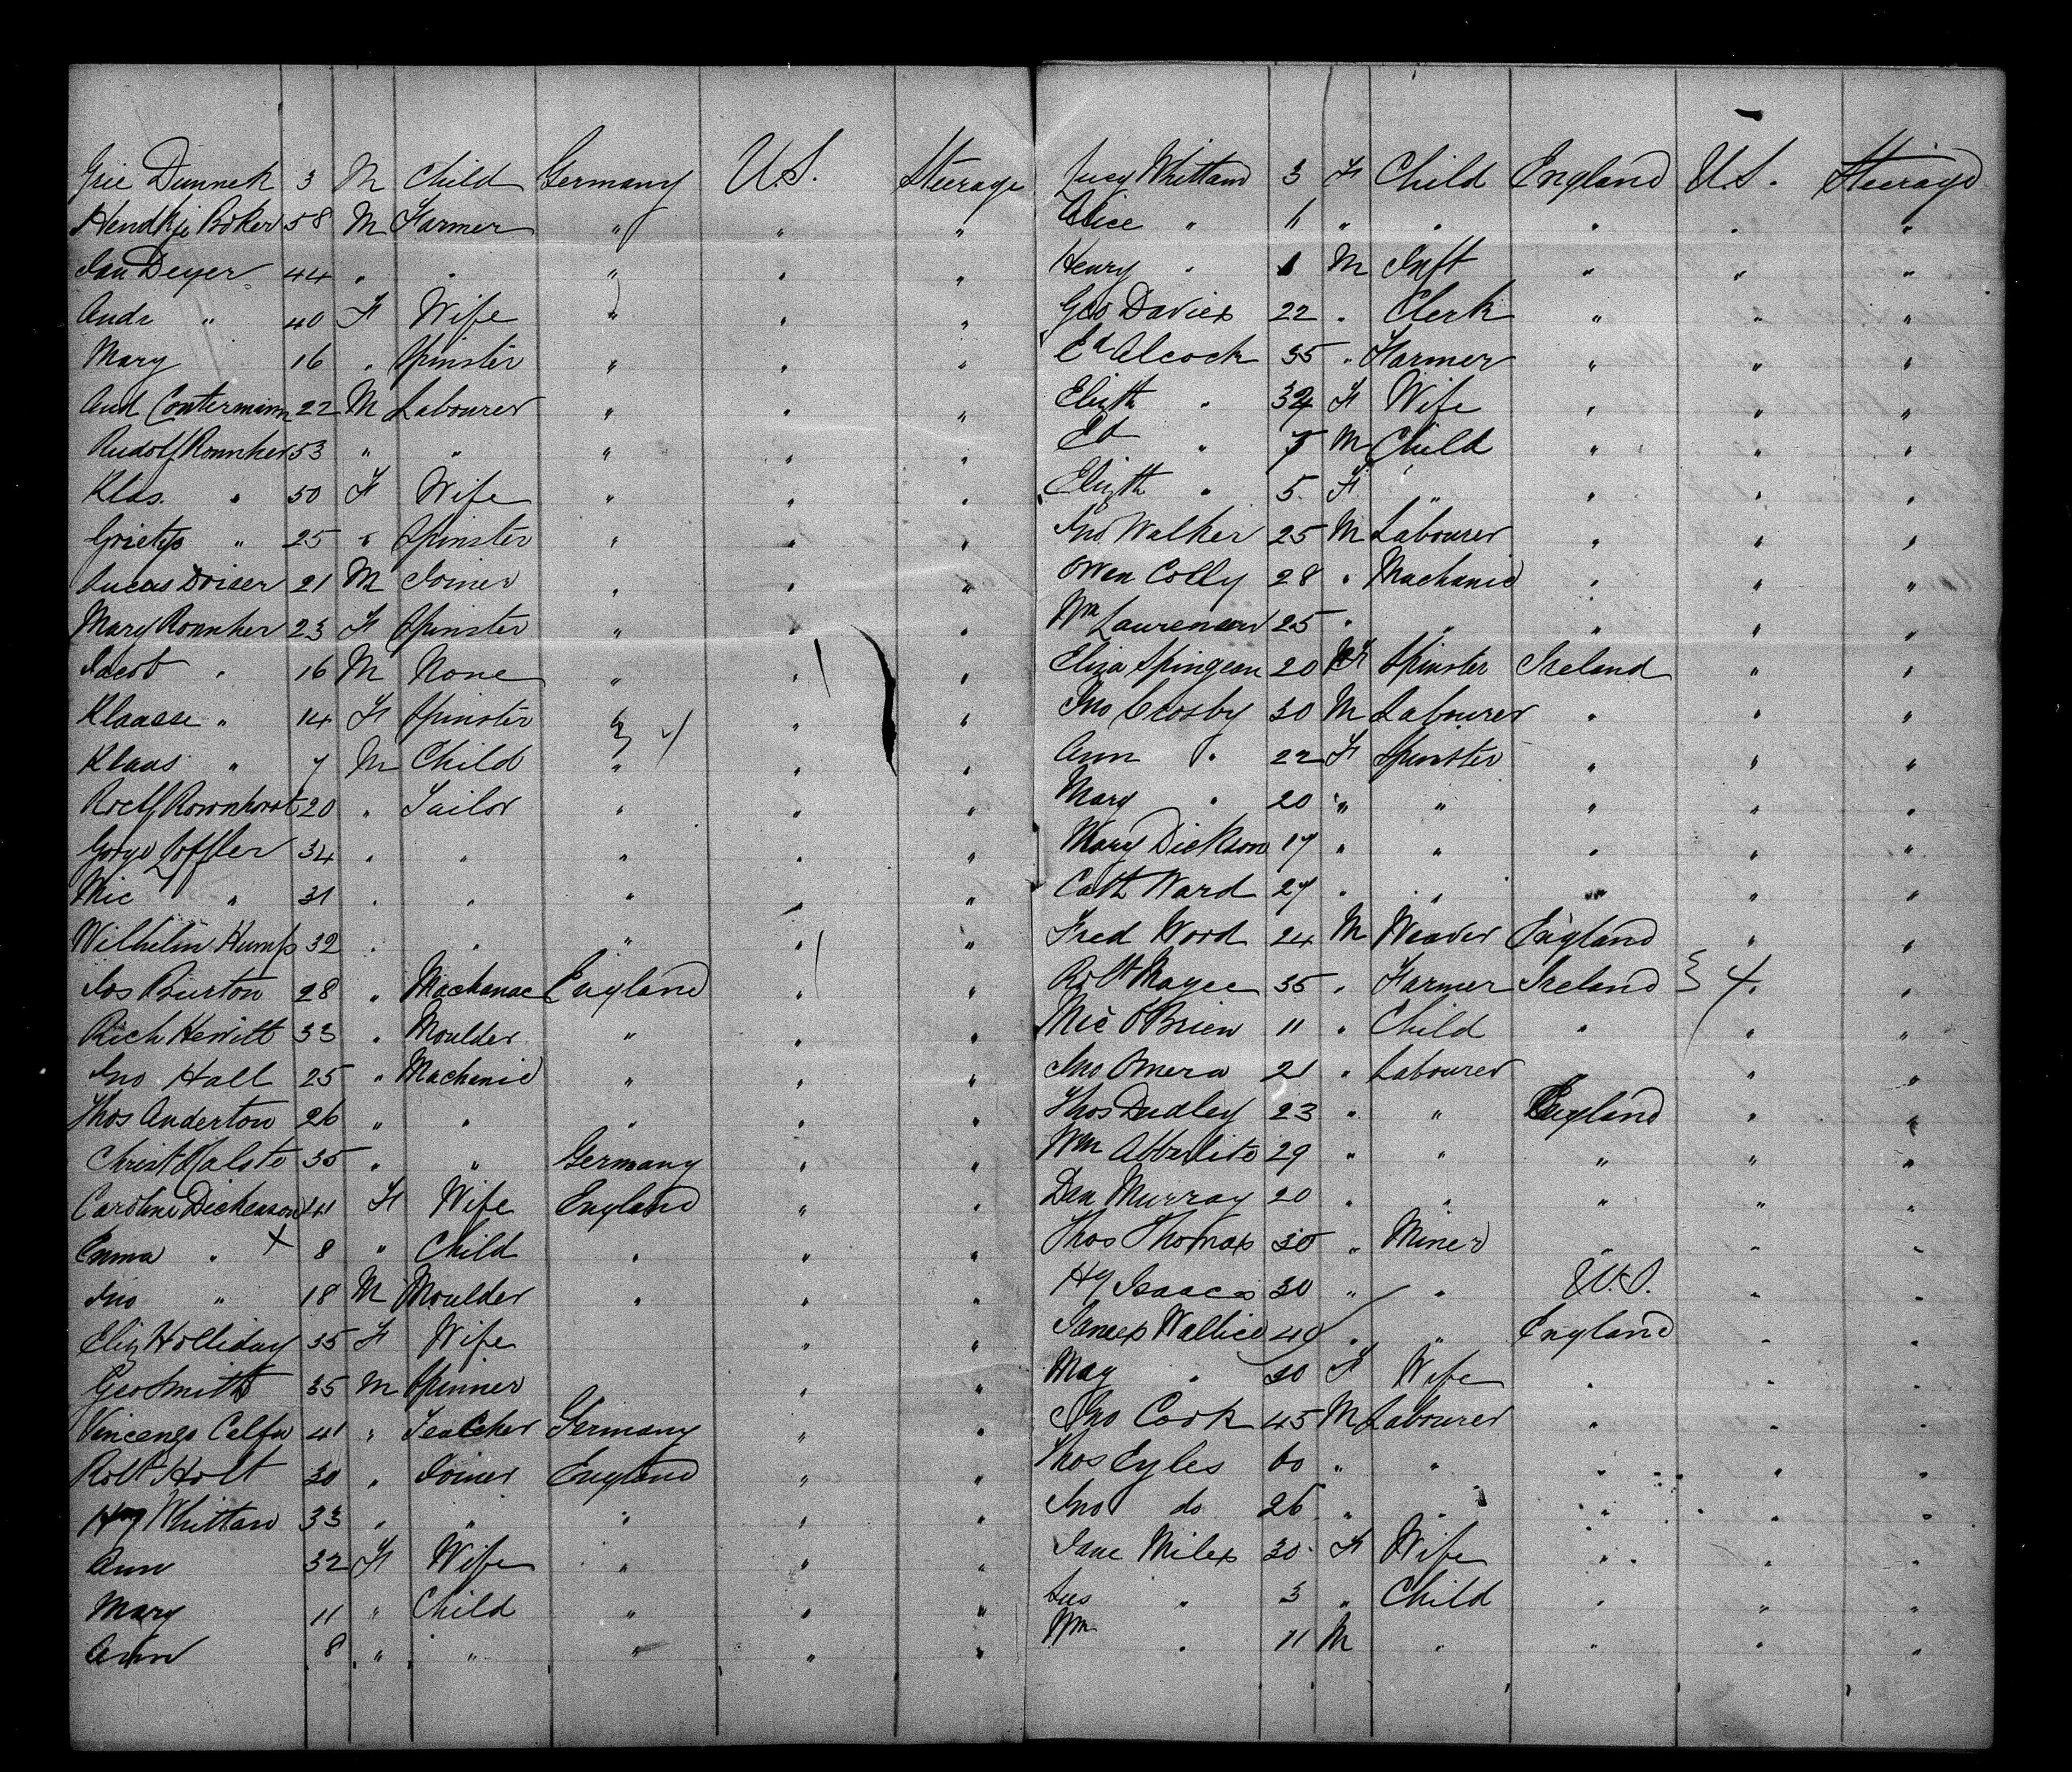 Grie Dunnek 3 M Child Germany U.S. Steerage
Hendkje Boker 58 M Farmer " " "
Jan Deyer 44 " " " " "
Andr " 40 F Wife " " "
Mary 16 " Spinster " " "
And Contermann 22 M Labourer " " "
Rudolf Rounker 53 " " " " "
Klas. " 50 F Wife " " "
Grietje " 25 " Spinster " " "
Lucas Doiser 21 M Joiner " " "
Mary Rounker 23 F Spinster " " "
Jacob " 16 M None " " "
Klaasse " 14 F Spinster " " "
Klaas " 7 M Child " " "
Roelf Rownhorst 20 " Tailor " " "
Gorge Loffler 34 " " " " "
Mic " 31 " " " " "
Wilhelm Humps 32 " " " " "
Jos Burton 28 " Machanac England " "
Rich Hewitt 33 " Moulder " " "
Jno Hall 25 " Machanic " " "
Thos Anderton 26 " " " " "
Christ Halste 35 " " Germany " "
Caroline Dickenson 41 F Wife England " "
Emma " X 8 " Child " " "
Jno " 18 M Moulder " " "
Eliz Holliday 35 F Wife " "
Geo Smith 35 M Spinner " "
Vincenzo Calfa 41 " Teacher Germany " "
Robt Holt 30 " Joiner England " "
Hy Whittam 33 " " " " "
Ann 32 F Wife " " "
Mary 11 " Child " " "
Ann 8 " " " " "
Lucy Whittam 3 F Child England U.S. Steerage
Alice " 11 " " " " "
Henry " 1 M Inft " " "
Geo Davies 22 " Clerk " " "
Ed Alcock 35 " Farmer " " "
Elizth " 34 F Wife " " "
Ed " 7 M Child " " "
Elizth " 5 F " " " "
Jno Walker 25 M Labourer " " "
Owen Colly 28 " Machanic " " "
Wm Laurenson 25 " " " " "
Eliza Spingean 20 F Spinster Ireland " "
Jno Crosby 30 M Labourer " " "
Ann " 22 F Spinster " " "
Mary " 20 " " " " "
Mary Dickson 17 " " " " "
Cath Ward 27 " " " " "
Fred Wood 24 M Weaver England " "
Robt Magee 35 " Farmer Ireland 4 "
Mic O'Brien 11 " Child " " "
Jno Omera 21 " Labourer " "
Thos Dudley 23 " " England " "
Wm 29 " " " " "
Dan Murray 20 " " " " "
Thos Thomas 30 " Miner " " "
Hy Isaacs 30 " " U.S. " "
James Wallice 40 " " England " "
May " 30 F Wife " " "
Jno Cook 45 M Labourer " " "
Thos Eyles 60 " " " " "
Jno do 26 " " " " "
Jane Miles 30 F Wife " " "
" 3 " Child " " "
Wm " 11 M " " " "